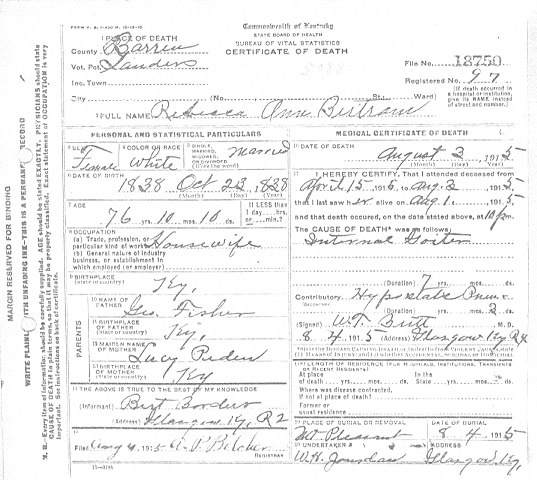 FORM V. S. 1-400 M. 12-16-10
Commonwealth of Kentucky
STATE BOARD OF HEALTH
BUREAU OF VITAL STATISTICS
CERTIFICATE OF DEATH
1 PLACE OF DEATH
County Barren
Vot. Pct. Sanders
Inc. Town
City (No. St.; Ward)
File No. 18750
Registered No. 97
(If death occurred in a hospital or institution, give its NAME instead of street and number.)
2 FULL NAME Rebecca Ann Bertram
PERSONAL AND STATISTICAL PARTICULARS
3 SEX Female
4 COLOR OR RACE White
5 SINGLE, MARRIED, WIDOWED, OR DIVORCED (Write the word) Married
6 DATE OF BIRTH
1838 Oct 23, 1838
(Month) (Day) (Year)
7 AGE
76 yrs. 10 mos. 10 ds.
If LESS than 1 day,...hrs. or...min.?
8 OCCUPATION
(a) Trade, profession, or particular kind of work Housewife
(b) General nature of industry business, or establishment in which employed (or employer)
9 BIRTHPLACE (State or country) Ky.
PARENTS
10 NAME OF FATHER Geo. Fisher
11 BIRTHPLACE OF FATHER (State or country) Ky,
12 MAIDEN NAME OF MOTHER Lucy Peden
13 BIRTHPLACE OF MOTHER (State or country) Ky
14 THE ABOVE IS TRUE TO THE BEST OF MY KNOWLEDGE
(Informant) Burt Borders
(Address) Glasgow Ky, R2
15 Filed Aug 4, 1915
REGISTRAR
11-3184
MEDICAL CERTIFICATE OF DEATH
16 DATE OF DEATH
August 2, 1915
(Month) (Day) (Year)
17 I HEREBY CERTIFY, That I attended deceased from
April 15 1915, to Aug. 2 1915
that I last saw her alive on Aug 1, 1915
and that death occurred, on the date stated above, at 10 p.m.
The CAUSE OF DEATH* was as follows:
Internal Goiter
(Duration) 7 yrs. mos. ds.
Contributory Hypostatic Pneu
(Duration) yrs. mos. 3 ds.
(Signed) W.T. Britt, M. D.
8 4 1915 (Address) Glasgow Ky R4
18 LENGTH OF RESIDENCE (FOR HOSPITALS, INSTITUTIONS, TRANSIENTS OR RECENT RESIDENTS)
At place of death yrs. mos. ds.
In the State yrs. mos. ds.
Where was disease contracted, if not at place of death?
Former or usual residence
19 PLACE OF BURIAL OR REMOVAL Mt Pleasant
DATE OF BURIAL 8 4 1915
20 UNDERTAKER W. H. Jourdan
ADDRESS Glasgow Ky,
MARGIN RESERVED FOR BINDING
WRITE PLAINLY WITH UNFADING INK—THIS IS A PERMANENT RECORD
N. B.—Every item of information should be carefully supplied. AGE should be stated EXACTLY. PHYSICIANS should state CAUSE OF DEATH in plain terms, so that it may be properly classified. Exact statement of OCCUPATION is very important. See instructions on back of certificate.